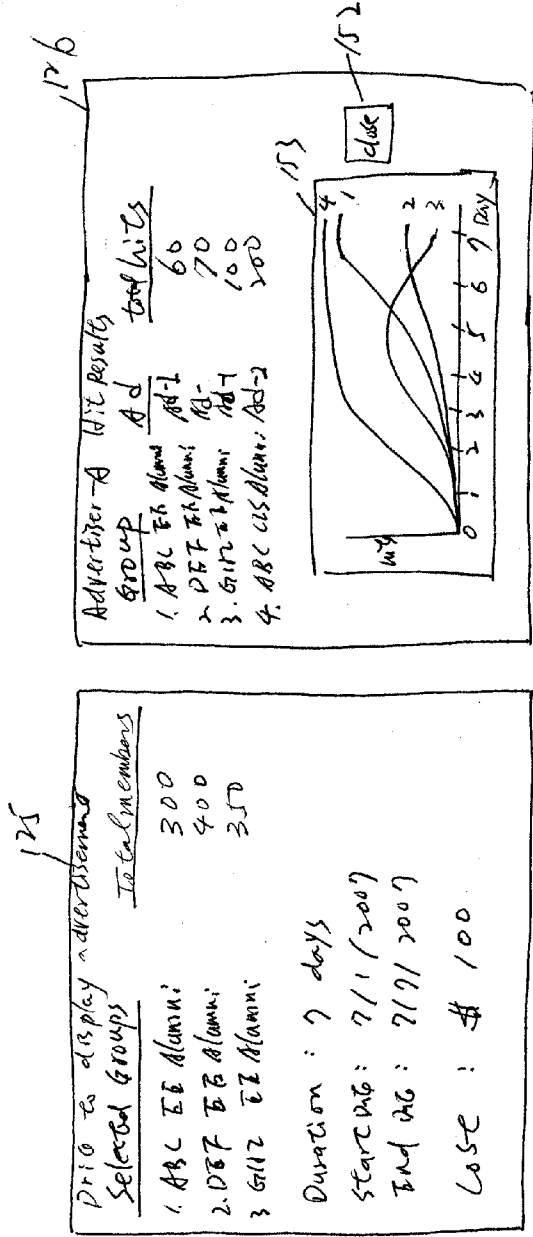 125
Price to display advertisement
Selected Groups Total members
1. ABC EE Alumni 300
2. DEF EE Alumni 400
3 GHZ EE Alumni 350
Duration : 7 days
Start Date : 7/1/2007
End Date : 7/7/2007
Cost : $ 100
126
Advertiser-A Hit Results
Group Ad total hits
1. ABC EE Alumni Ad-1 60
2 DEF EE Alumni Ad- 70
3. GHZ EE Alumni Ad-1 100
4. ABC CIS Alumni Ad-2 200
153
hits
4
1
2
3
0 1 2 3 4 5 6 7 Day
close
152